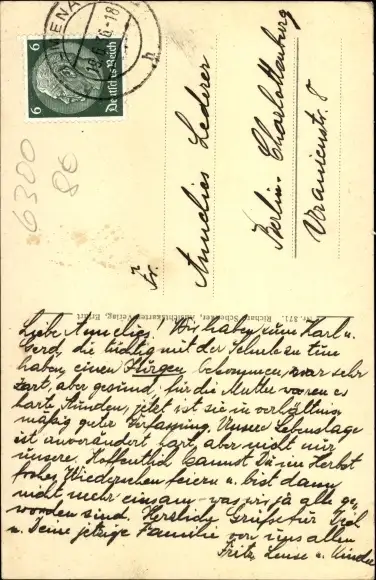 ILMENAU
19.6.36-18
h
6
6
Deutsches Reich
6300
8€
Fr.
Annelies Lederer
Berlin-Charlottenburg
Uranienstr. 8
Nr. 371. Richard Verlag, Erfurt
Liebe Annelies! Wir haben zum Karl u.
Gerd, die tüchtig mit der
haben, einen Jürgen bekommen, zwar sehr
zart, aber gesund, für die Mutter waren es
harte Stunden, jetzt ist sie in verhältnis-
mäßig guter Verfassung. Unsere Lebenslage
ist unverändert hart, aber nicht nur
unsere. Hoffentlich kannst Du im Herbst
frohes Wiedersehen feiern u. bist dann
nicht mehr einsam was wir ja alle ge-
worden sind. Herzliche Grüße für Dich
u. Deine jetzige Familie von uns allen
Fritz, u. Kinder